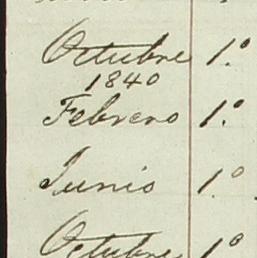 Octubre 1.º
1840
Febrero 1.º
Junio 1.º
Octubre 1.º